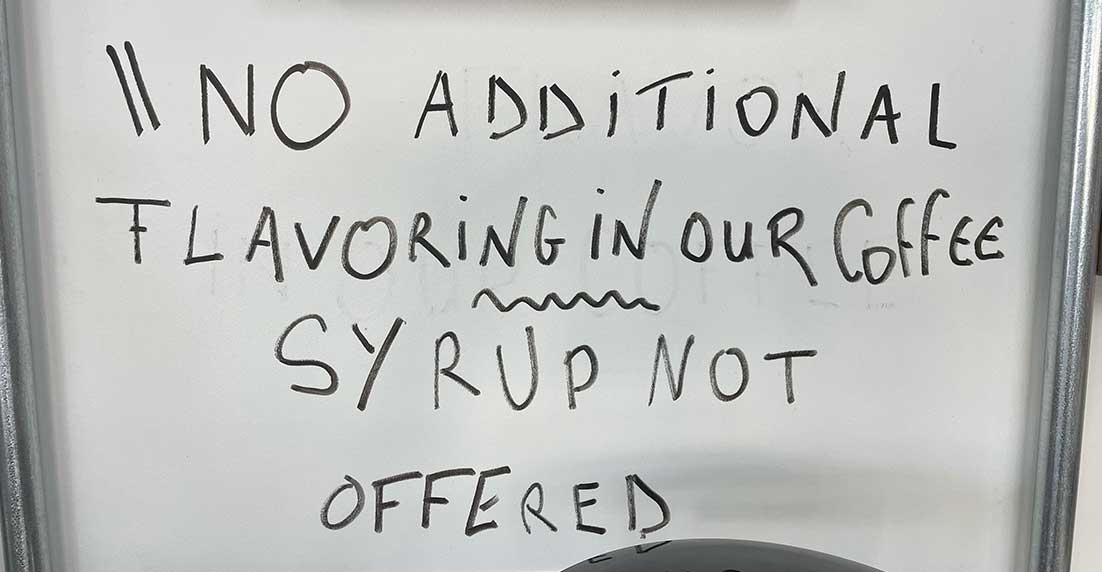 \\ NO ADDiTiONAL
FLAVORiNG iN OUR COFFEE
SYRUP NOT
OFFERED